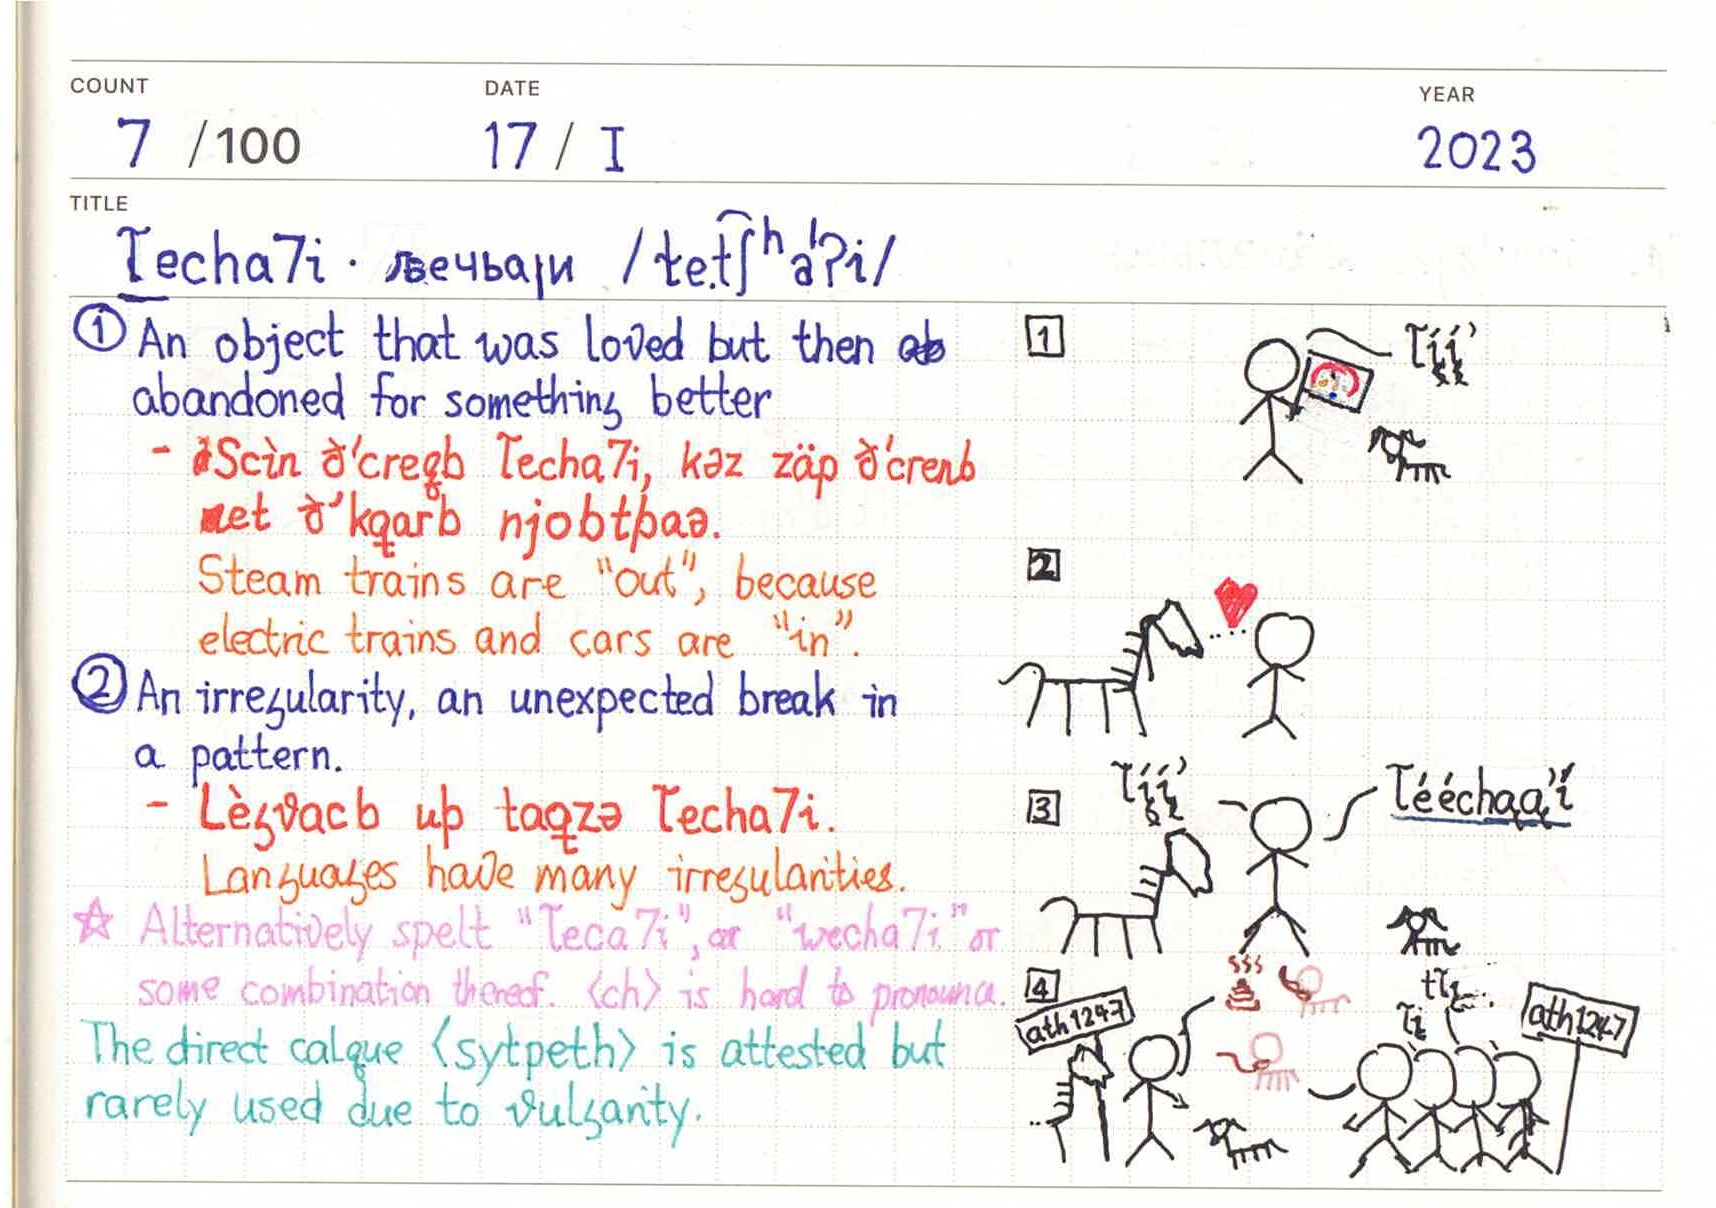 COUNT
DATE
YEAR
7 /100
17 / I
2023
TITLE
Ꞇecha7i · љечьаји /ɬe.t͡ʃʰəˈʔi/
① An object that was loved but then
abandoned for something better
1
- Scìn ð'creqb Ꞇecha7i, kəz zäp ð'crenb
et ð'kqarb njobtþaə.
Steam trains are "out", because
electric trains and cars are "in".
2
② An irregularity, an unexpected break in
a pattern.
3
- Lègvacb uþ taqzə Ꞇecha7i.
Languages have many irregularities.
☆ Alternatively spelt "Ꞇeca7i", or "wecha7i" or
some combination thereof. ⟨ch⟩ is hard to pronounce.
4
ath1247
ath1247
The direct calque ⟨sytpeth⟩ is attested but
rarely used due to vulgarity.